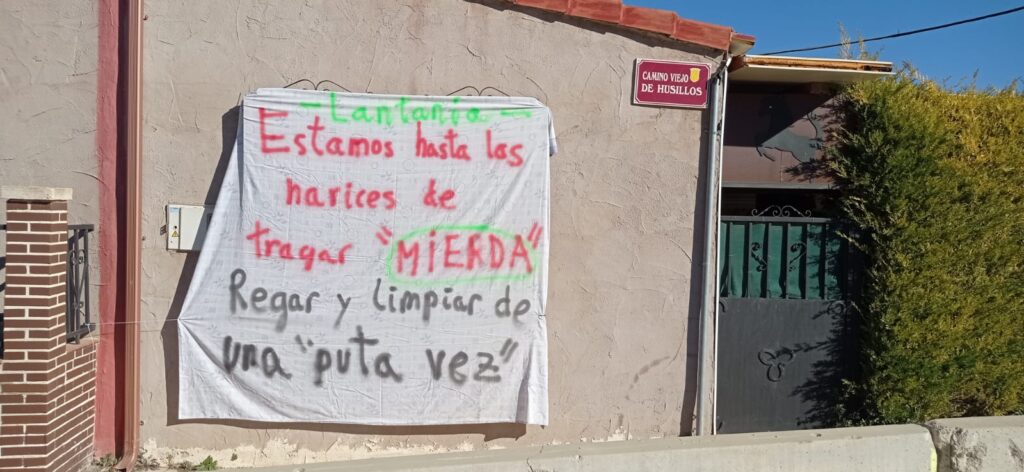 - Lantania -
Estamos hasta las
narices de
tragar "MiERDA"
Regar y limpiar de
una "puta vez"
CAMINO VIEJO
DE HUSILLOS